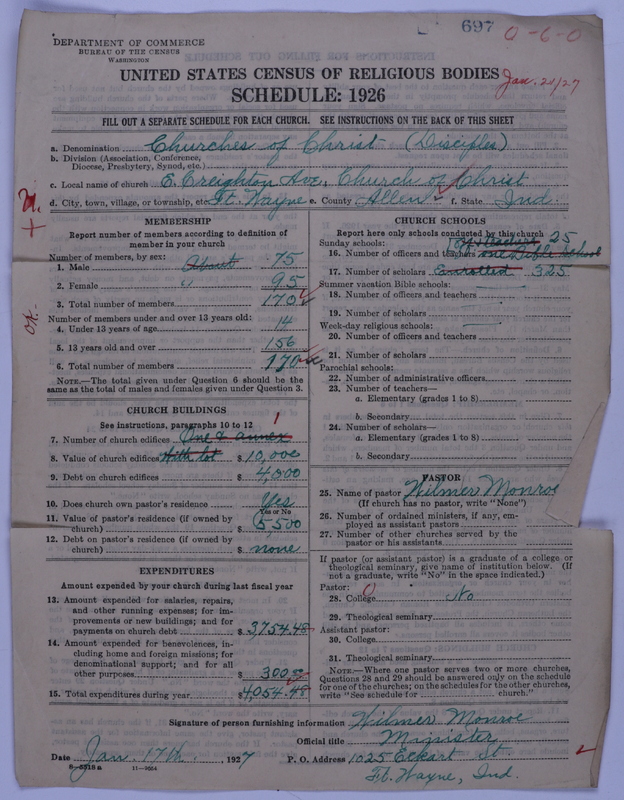 697 0-6-0
DEPARTMENT OF COMMERCE
BUREAU OF THE CENSUS
WASHINGTON
UNITED STATES CENSUS OF RELIGIOUS BODIES Jan. 21/27
SCHEDULE: 1926
FILL OUT A SEPARATE SCHEDULE FOR EACH CHURCH. SEE INSTRUCTIONS ON THE BACK OF THIS SHEET
a. Denomination Churches of Christ (Disciples)
b. Division (Association, Conference,
Diocese, Presbytery, Synod, etc.)
c. Local name of church E. Creighton Ave. Church of Christ
d. City, town, village, or township, etc. Ft. Wayne e. County Allen f. State Ind.
MEMBERSHIP
Report number of members according to definition of
member in your church
Number of members, by sex:
1. Male About 75
2. Female " 95
3. Total number of members 170
Number of members under and over 13 years old:
4. Under 13 years of age 14
5. 13 years old and over 156
6. Total number of members 170
NOTE.—The total given under Question 6 should be the
same as the total of males and females given under Question 3.
CHURCH BUILDINGS
See instructions, paragraphs 10 to 12
7. Number of church edifices One & annex 1
8. Value of church edifices With lot $ 10,000
9. Debt on church edifices $ 4,000
10. Does church own pastor's residence Yes
Yes or No
11. Value of pastor's residence (if owned by
church) $ 5,500
12. Debt on pastor's residence (if owned by
church) $ none
EXPENDITURES
Amount expended by your church during last fiscal year
13. Amount expended for salaries, repairs,
and other running expenses; for im-
provements or new buildings; and for
payments on church debt $ 3,754.48
14. Amount expended for benevolences, in-
cluding home and foreign missions; for
denominational support; and for all
other purposes $ 300.00
15. Total expenditures during year $ 4,054.48
CHURCH SCHOOLS
Report here only schools conducted by this church
Sunday schools:
16. Number of officers and teachers one Bible School 25
17. Number of scholars enrolled 325
Summer vacation Bible schools:
18. Number of officers and teachers
19. Number of scholars
Week-day religious schools:
20. Number of officers and teachers
21. Number of scholars
Parochial schools:
22. Number of administrative officers
23. Number of teachers—
a. Elementary (grades 1 to 8)
b. Secondary
24. Number of scholars—
a. Elementary (grades 1 to 8)
b. Secondary
PASTOR
25. Name of pastor Wilmer Monroe
(If church has no pastor, write "None")
26. Number of ordained ministers, if any, em-
ployed as assistant pastors
27. Number of other churches served by the
pastor or his assistants
If pastor (or assistant pastor) is a graduate of a college or
theological seminary, give name of institution below. (If
not a graduate, write "No" in the space indicated.)
Pastor:
28. College 0 No
29. Theological seminary
Assistant pastor:
30. College
31. Theological seminary
NOTE.—Where one pastor serves two or more churches,
Questions 28 and 29 should be answered only on the schedule
for one of the churches; on the schedules for the other churches,
write "See schedule for church."
Signature of person furnishing information Wilmer Monroe
Official title Minister
Date Jan. 17th, 1927 P. O. Address 1025 Eckart St.
8—5518 a 11—9554 Ft. Wayne, Ind.